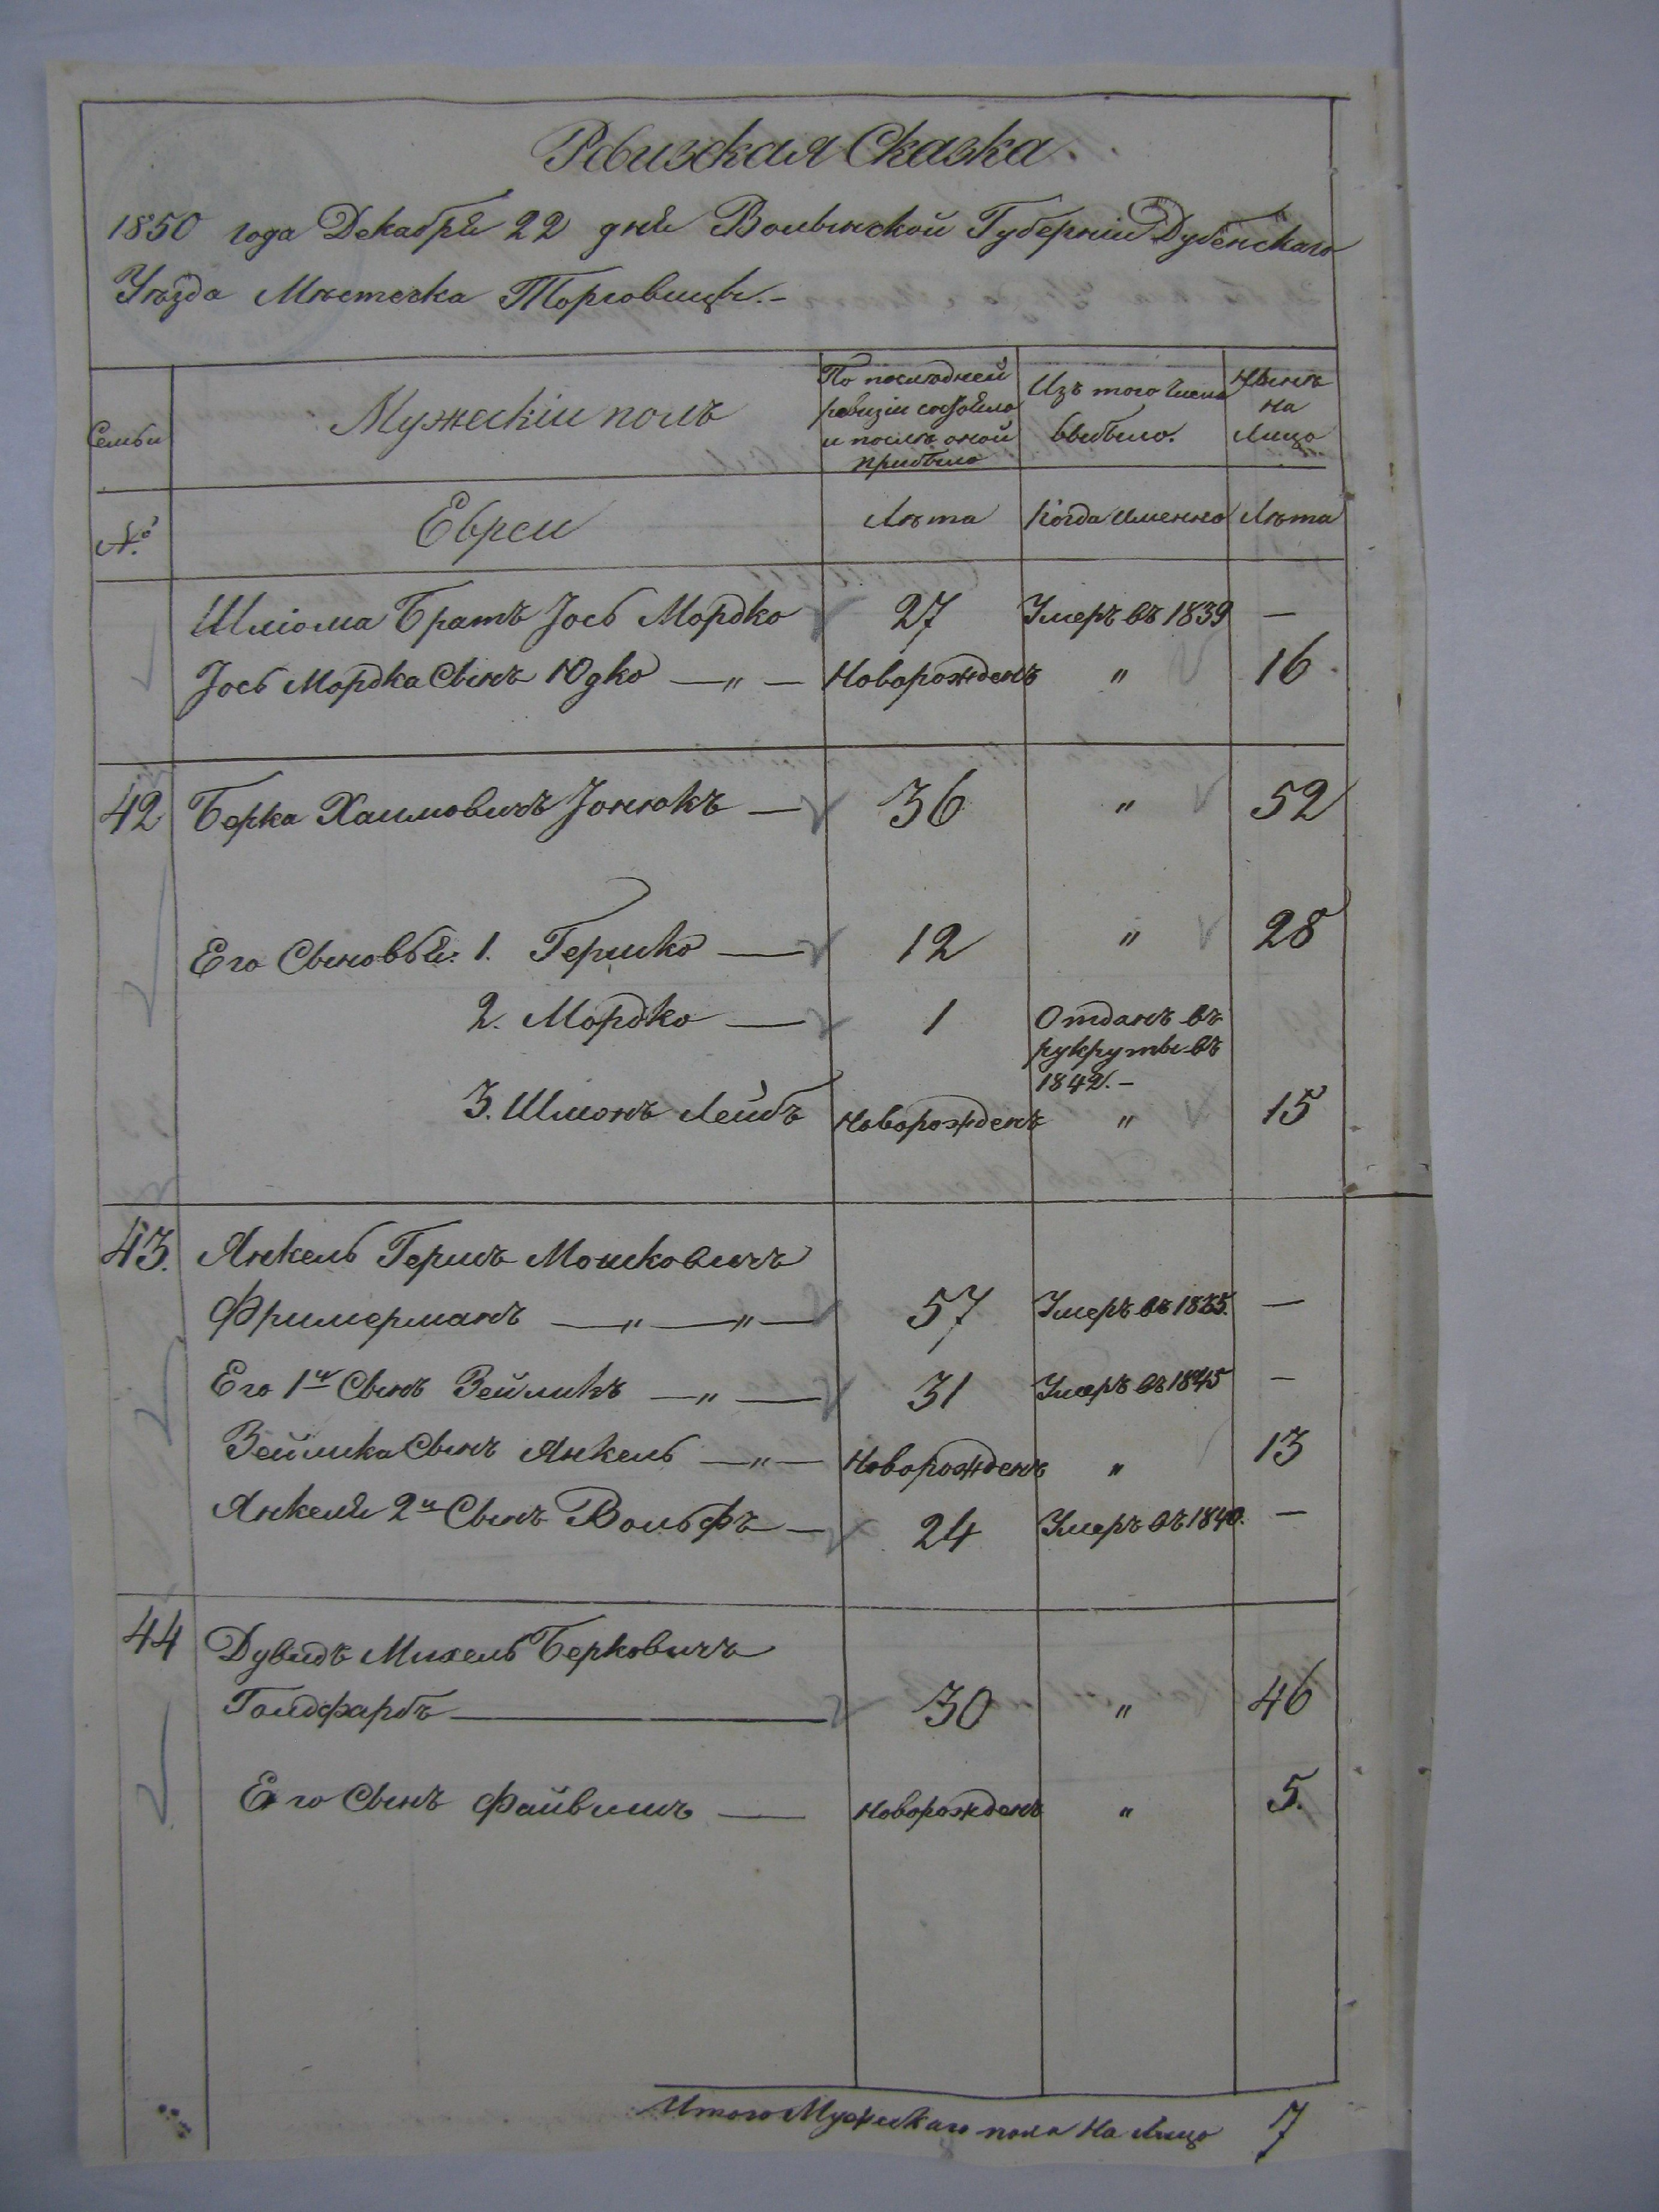 Ревизская Сказка.
1850 года Декабря 22 дня Волынской Губерніи Дубенскаго
Уѣзда Мѣстечка Торговицы.-
Семьи
Мужескій полъ
По послѣдней
ревизіи состояло
и послѣ оной
прибыло
Изъ того числа
выбыло.
Нынѣ
на
Лицо
№
Евреи
Лѣта
Когда именно
Лѣта
Шліома Братъ Іось Мордко 27 Умеръ въ 1839 —
Іось Мордка Сынъ Юдко —„— Новорожденъ „ 16
42 Берка Хаимовичъ Іонюкъ — 36 „ 52
Его Сыновья: 1. Гершко — 12 „ 28
2. Мордко — 1 Отданъ въ
рукруты въ
1842.-
3. Шмонъ Лейбъ Новорожденъ „ 15
43. Янкель Гершъ Мошковичъ
Фримерманъ —„—„— 57 Умеръ въ 1835. —
Его 1й Сынъ Зейликъ —„— 31 Умеръ въ 1845 —
Зейлика Сынъ Янкель —„— Новорожденъ „ 13
Янкеля 2й Сынъ Вольфъ — 24 Умеръ въ 1840. —
44 Дувидъ Михель Берковичъ
Голдфарбъ — 30 „ 46
Его Сынъ Файвишъ — Новорожденъ „ 5.
Итого Мужескаго пола На Лицо 7